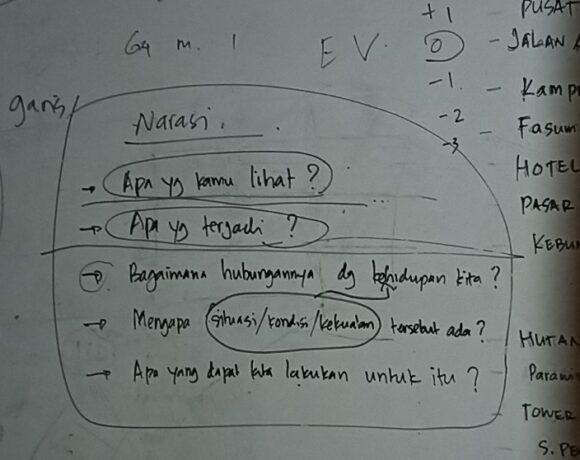 +1
PUSAT
Gam. 1
EV.
0
- JALAN A
-1
- Kamp
garis
-2
- Fasum
-3
Narasi.
HOTEL
→ Apa yg kamu lihat?
...
PASAR
→ Apa yg terjadi?
KEBUN
→ Bagaimana hubungannya dg kehidupan kita?
→ Mengapa situasi/kondisi/kekuatan tersebut ada?
HUTAN
→ Apa yang dapat kita lakukan untuk itu?
Parawis
TOWER
S. PE